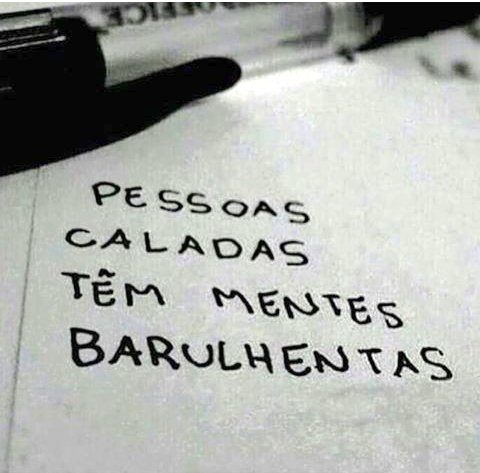 OFFICE
PESSOAS
CALADAS
TÊM MENTES
BARULHENTAS